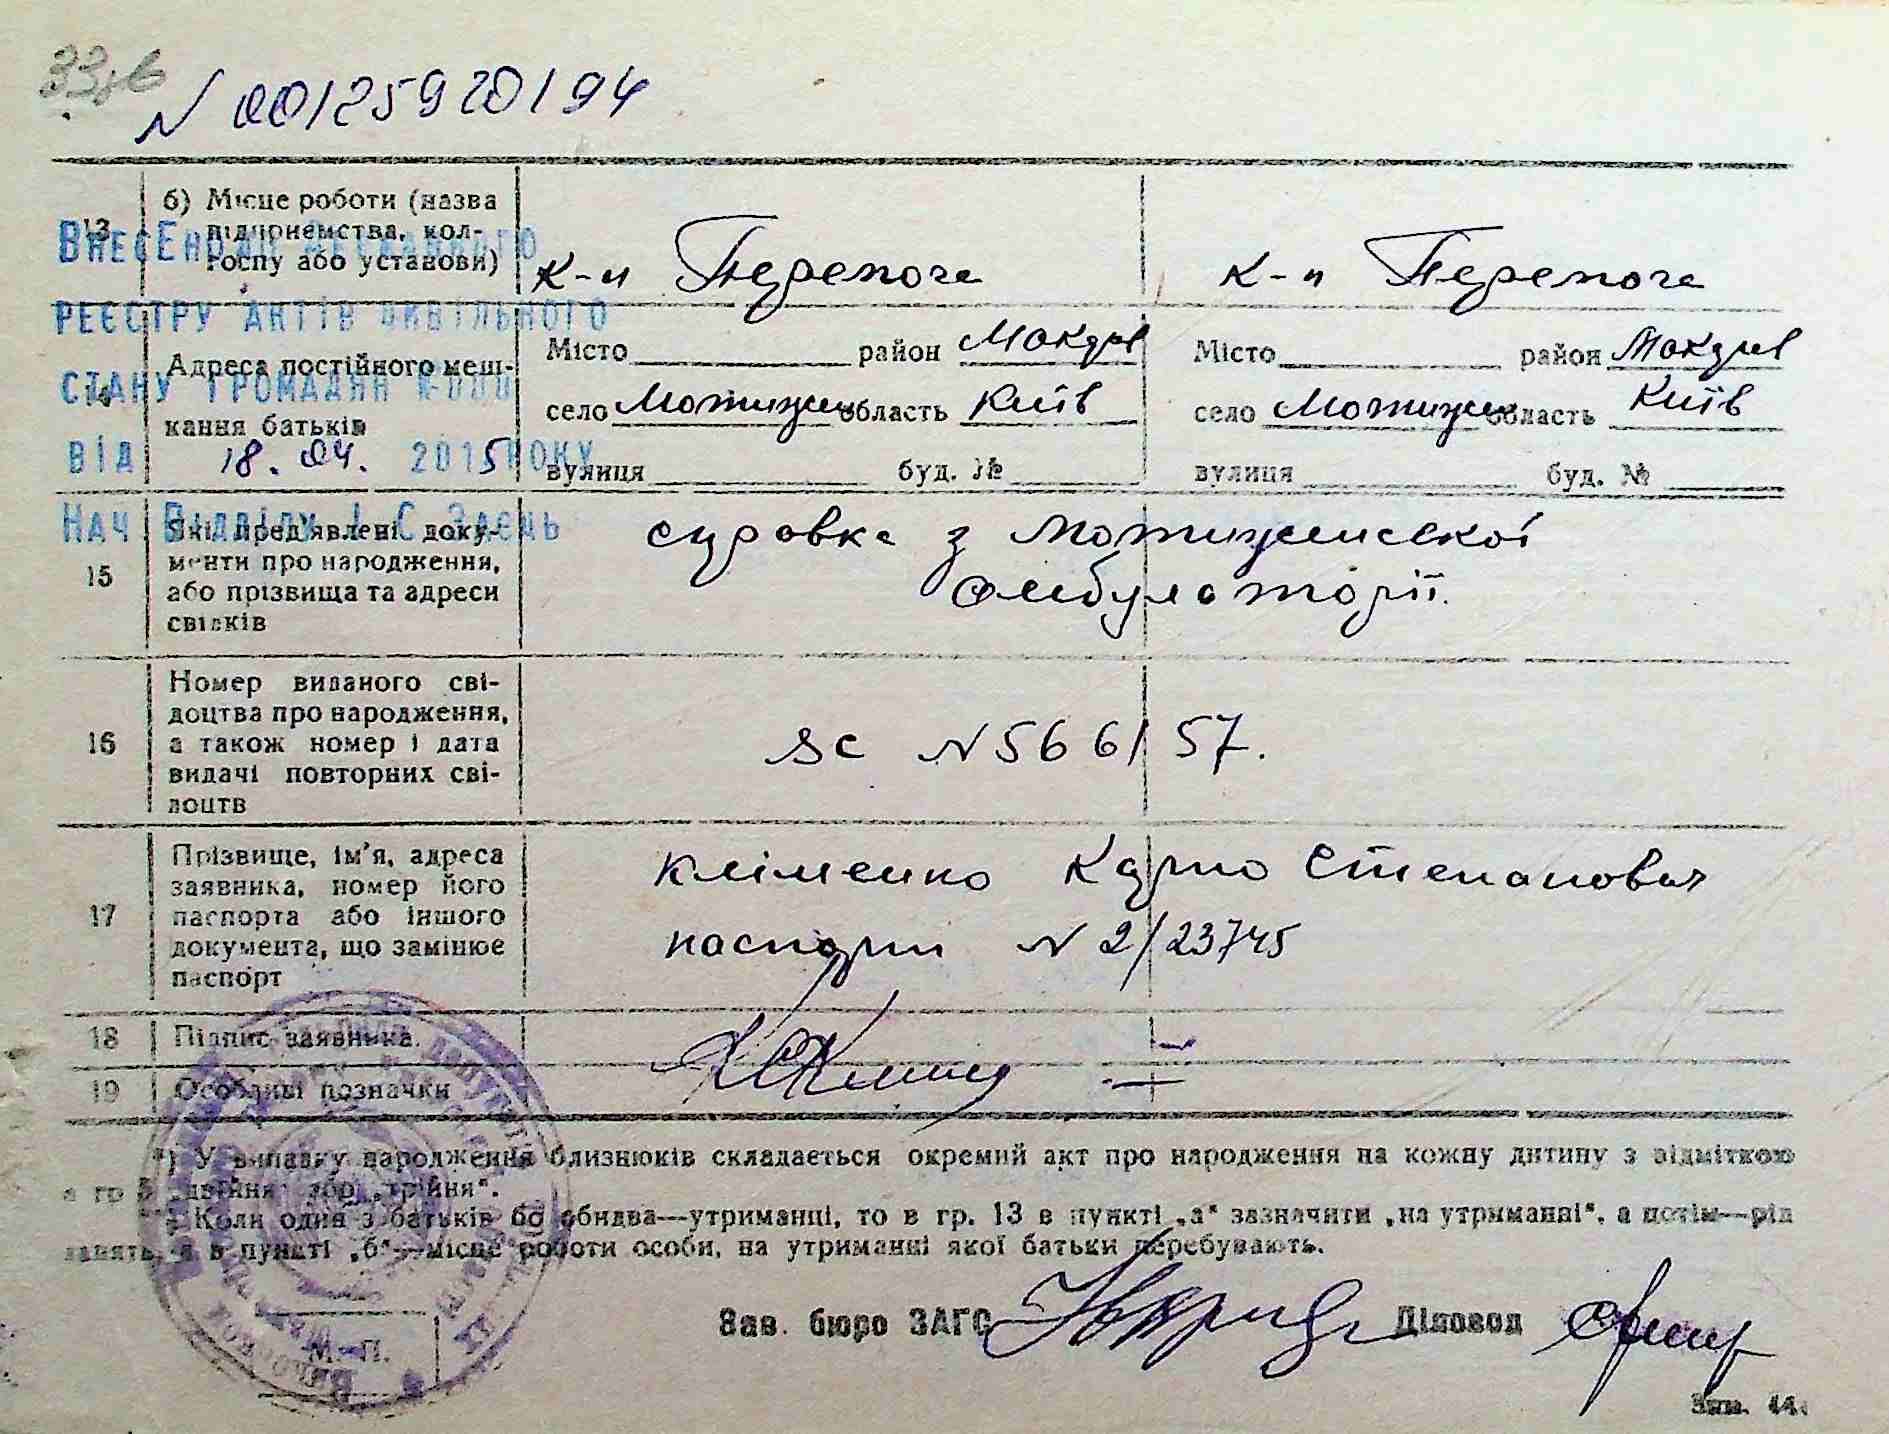 N 00125920194
13 б) Місце роботи (назва підприємства, колгоспу або установи)
к-п Перемога
к-п Перемога
Внесено до Державного
реєстру актів цивільного
стану громадян
від 18. 04. 2015 року
Нач. Відділу І.С. Заєць
14 Адреса постійного меш-
кання батьків
Місто район Макарів
село Мотижин область Київ
вулиця буд. №
Місто район Макарів
село Мотижин область Київ
вулиця буд. №
15 Які пред'явлені доку-
менти про народження,
або прізвища та адреси
свідків
справка з Мотижинської
амбулаторії.
16 Номер виданого сві-
доцтва про народження,
а також номер і дата
видачі повторних сві-
доцтв
N 566157.
17 Прізвище, ім'я, адреса
заявника, номер його
паспорта або іншого
документа, що замінює
паспорт
Кліменко Карпо Степанович
паспорт N 2/23745
18 Підпис заявника.
19 Особливі позначки —
*) У випадку народження близнюків складається окремий акт про народження на кожну дитину з відміткою
в гр. 5 „двійня" або „трійня".
**) Коли один з батьків бо обидва—утриманці, то в гр. 13 в пункті „а" зазначити „на утриманні", а потім—рід
занять, а в пункті „б"—місце роботи особи, на утриманні якої батьки перебувають.
Зав. бюро ЗАГС Діловод
М. П.
Зам. 44.